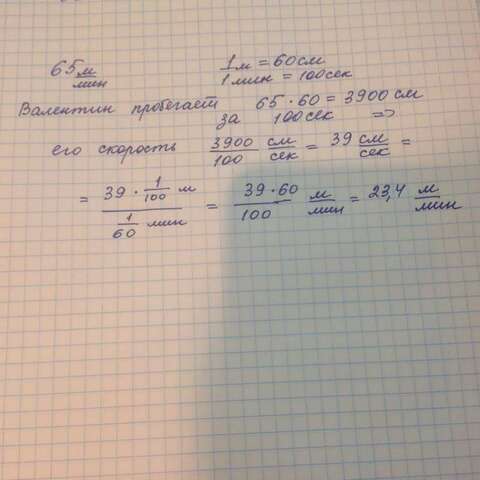 65 м/мин 1м = 60см
1мин = 100сек
Валентин пробегает 65·60 = 3900 см
за 100сек =>
его скорость 3900/100 см/сек = 39 см/сек =
= (39 · 1/100 м)/(1/60 мин) = (39·60)/100 м/мин = 23,4 м/мин